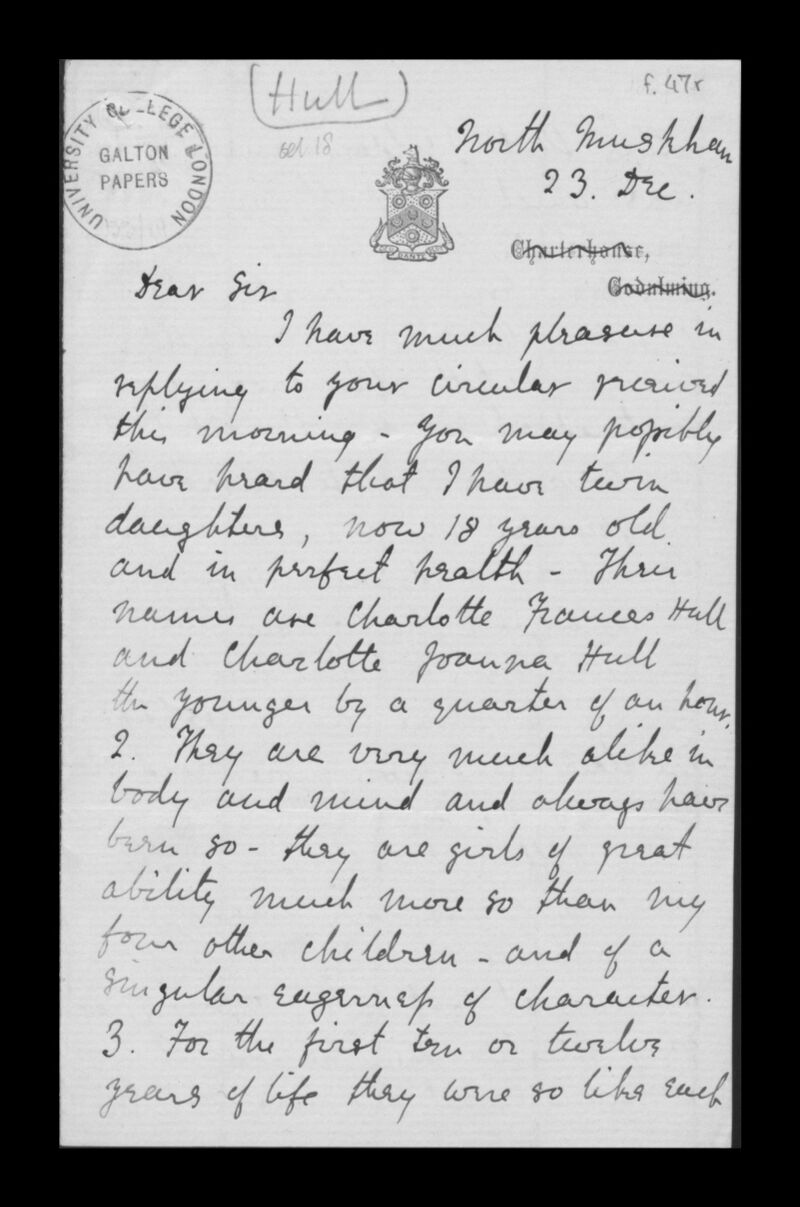 (Hull)
f. 47r
UNIVERSITY COLLEGE LONDON
GALTON
PAPERS
North Muskham
23. Dec.
Charterhouse,
Godalming.
Dear Sir
I have much pleasure in
replying to your circular received
this morning - You may possibly
have heard that I have twin
daughters, now 18 years old
and in perfect health - Their
names are Charlotte Frances Hull
and Charlotte Joanna Hull
the younger by a quarter of an hour.
2. They are very much alike in
body and mind and always have
been so - they are girls of great
ability much more so than my
four other children - and of a
singular eagerness of character.
3. For the first ten or twelve
years of life they were so like each